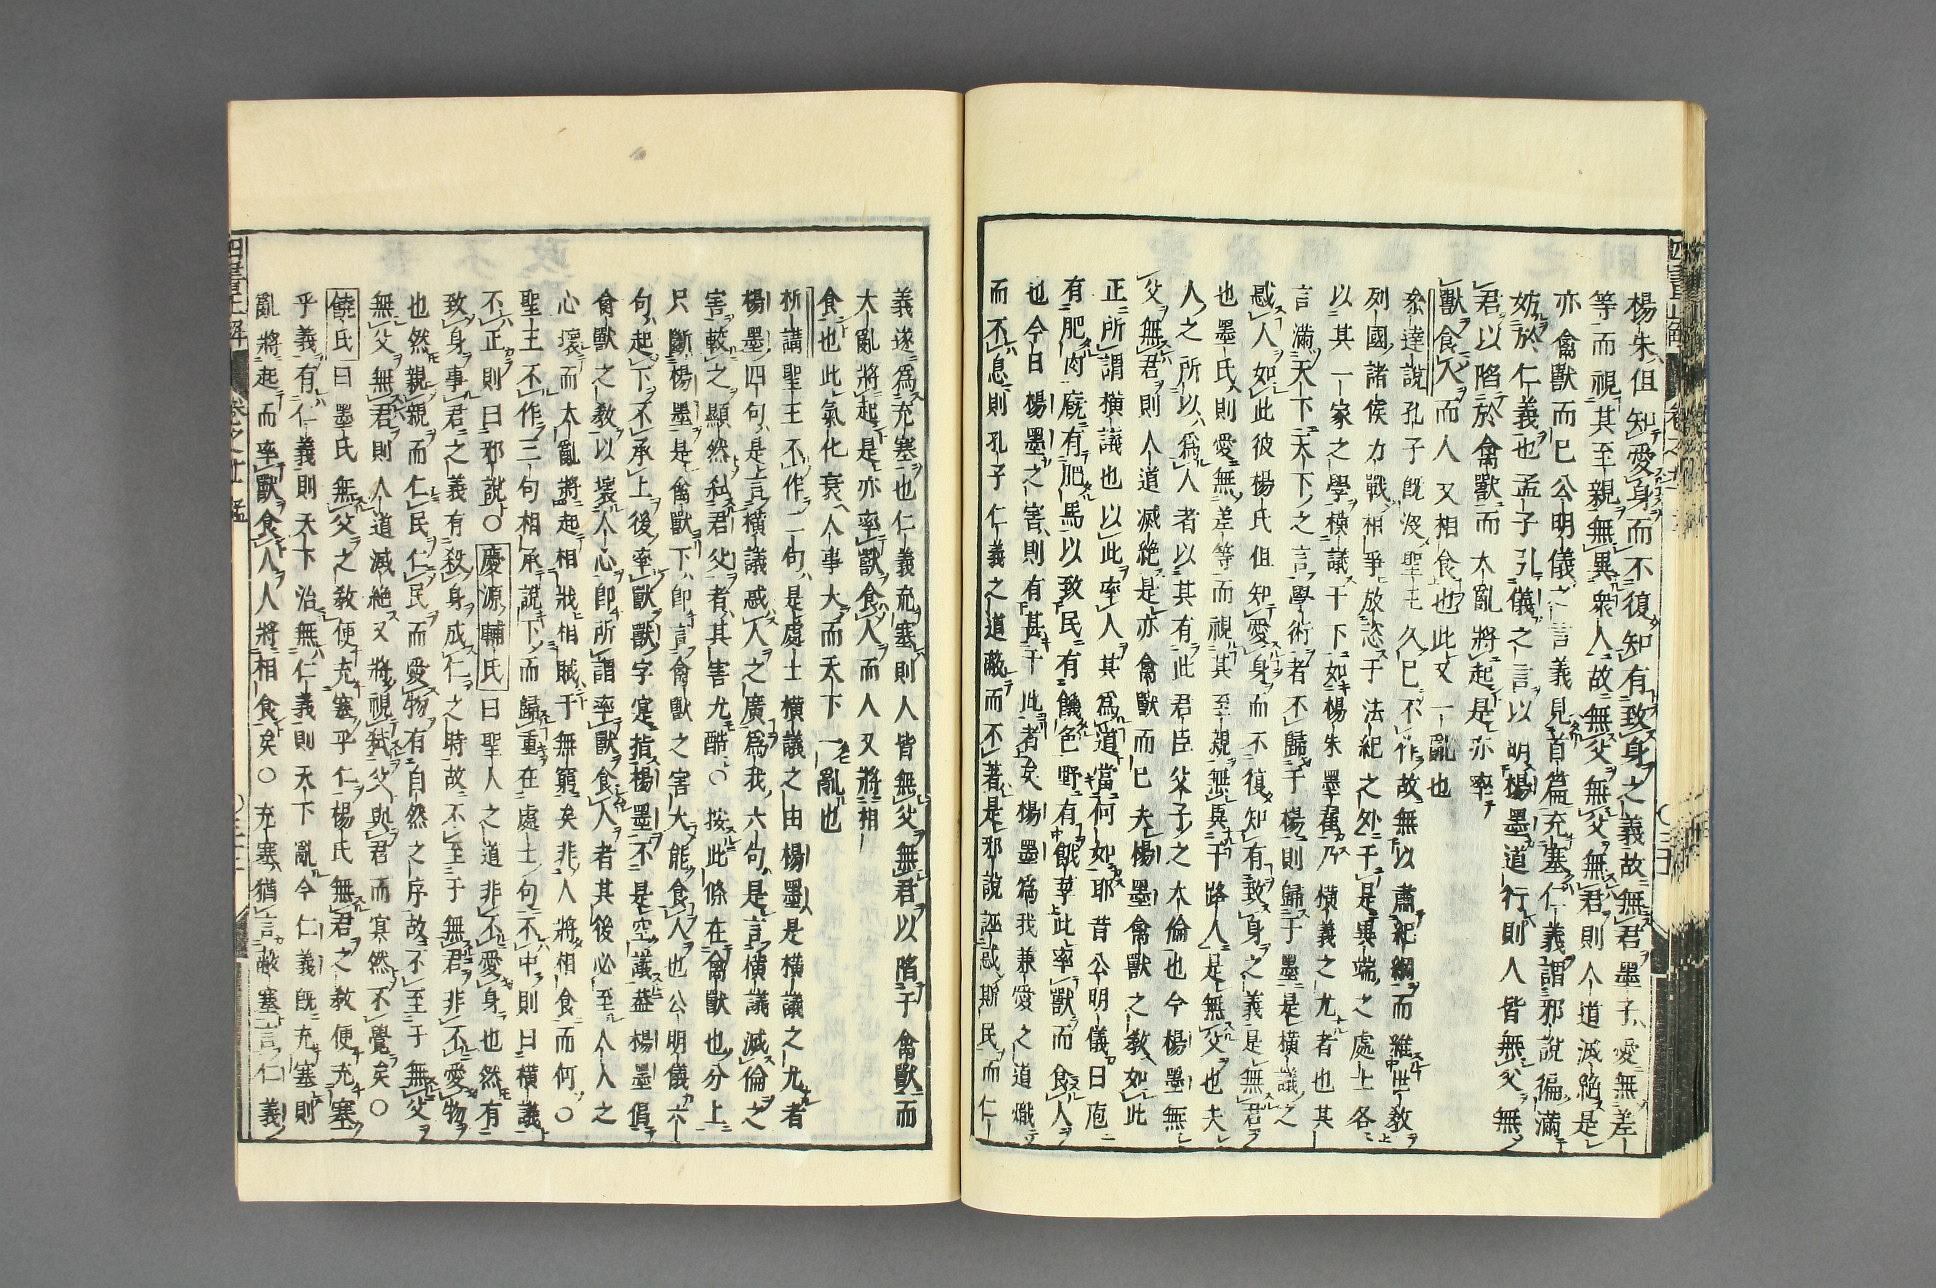 楊朱但知愛身而不復知有致身之義故無君墨子愛無差
等而視其至親無異衆人故無父無父無君則人道滅絶是
亦禽獸而已公明儀之言義見首篇充塞仁義謂邪說徧滿
妨於仁義也孟子引儀之言以明楊墨道行則人皆無父無
君以陷於禽獸而大亂將起是亦率
獸食人而人又相食也此又一亂也
叅達說孔子旣沒聖王久已不作故無以肅紀綱而維世敎
列國諸侯力戰相爭放恣于法紀之外于是異端之處士各
以其一家之學橫議于下如楊朱墨翟乃橫義之尤者也其
言滿天下天下之言學術者不歸于楊則歸于墨是橫議之
惑人如此彼楊氏但知愛身而不復知有致身之義是無君
也墨氏則愛無差等而視其至親無異于路人是無父也夫
人之所以爲人者以其有此君臣父子之大倫也今楊墨無
父無君則人道滅絶是亦禽獸而已夫楊墨禽獸之敎如此
正所謂橫議也以此率人其爲道當何如耶昔公明儀曰庖
有肥肉廐有肥馬以致民有饑色野有餓莩此率獸而食人
也今日楊墨之害則有甚于此者矣楊墨爲我兼愛之道熾
而不息則孔子仁義之道蔽而不著是邪說誣惑斯民而仁
義遂爲充塞也仁義充塞則人皆無父無君以陷于禽獸而
大亂將起是亦率獸食人而人又將相
食也此氣化衰人事大而天下一亂也
析講聖王不作二句是處士橫議之由楊墨是橫議之尤者
楊墨四句是言橫議惑人之廣爲我六句是言橫議滅倫之
害較之顯然私君父者其害尤酷○按此條在禽獸也分上
只斷楊墨是禽獸下卽言禽獸之害大能食人也公明儀六
句起下不承上後率獸獸字寔指楊墨不是空議葢楊墨倡
禽獸之敎以壞人心卽所謂率獸食人者其後必至人人之
心壞而大亂將起相戕相賊于無窮矣非人將相食而何○
聖王不作三句相承說下而歸重在處士句不中則曰橫議
不正則曰邪說○慶源輔氏曰聖人之道非不愛身也然有
致身事君之義有殺身成仁之時故不至于無君非不愛物
也然親親而仁民仁民而愛物有自然之序故不至于無父
無父無君則人道滅絶又將視弑父與君而寞然不覺矣○
饒氏曰墨氏無父之敎便充塞乎仁楊氏無君之敎便充塞
乎義有仁義則天下治無仁義則天下亂今仁義旣充塞則
亂將起而率獸食人人將相食矣○充塞猶言蔽塞言仁義